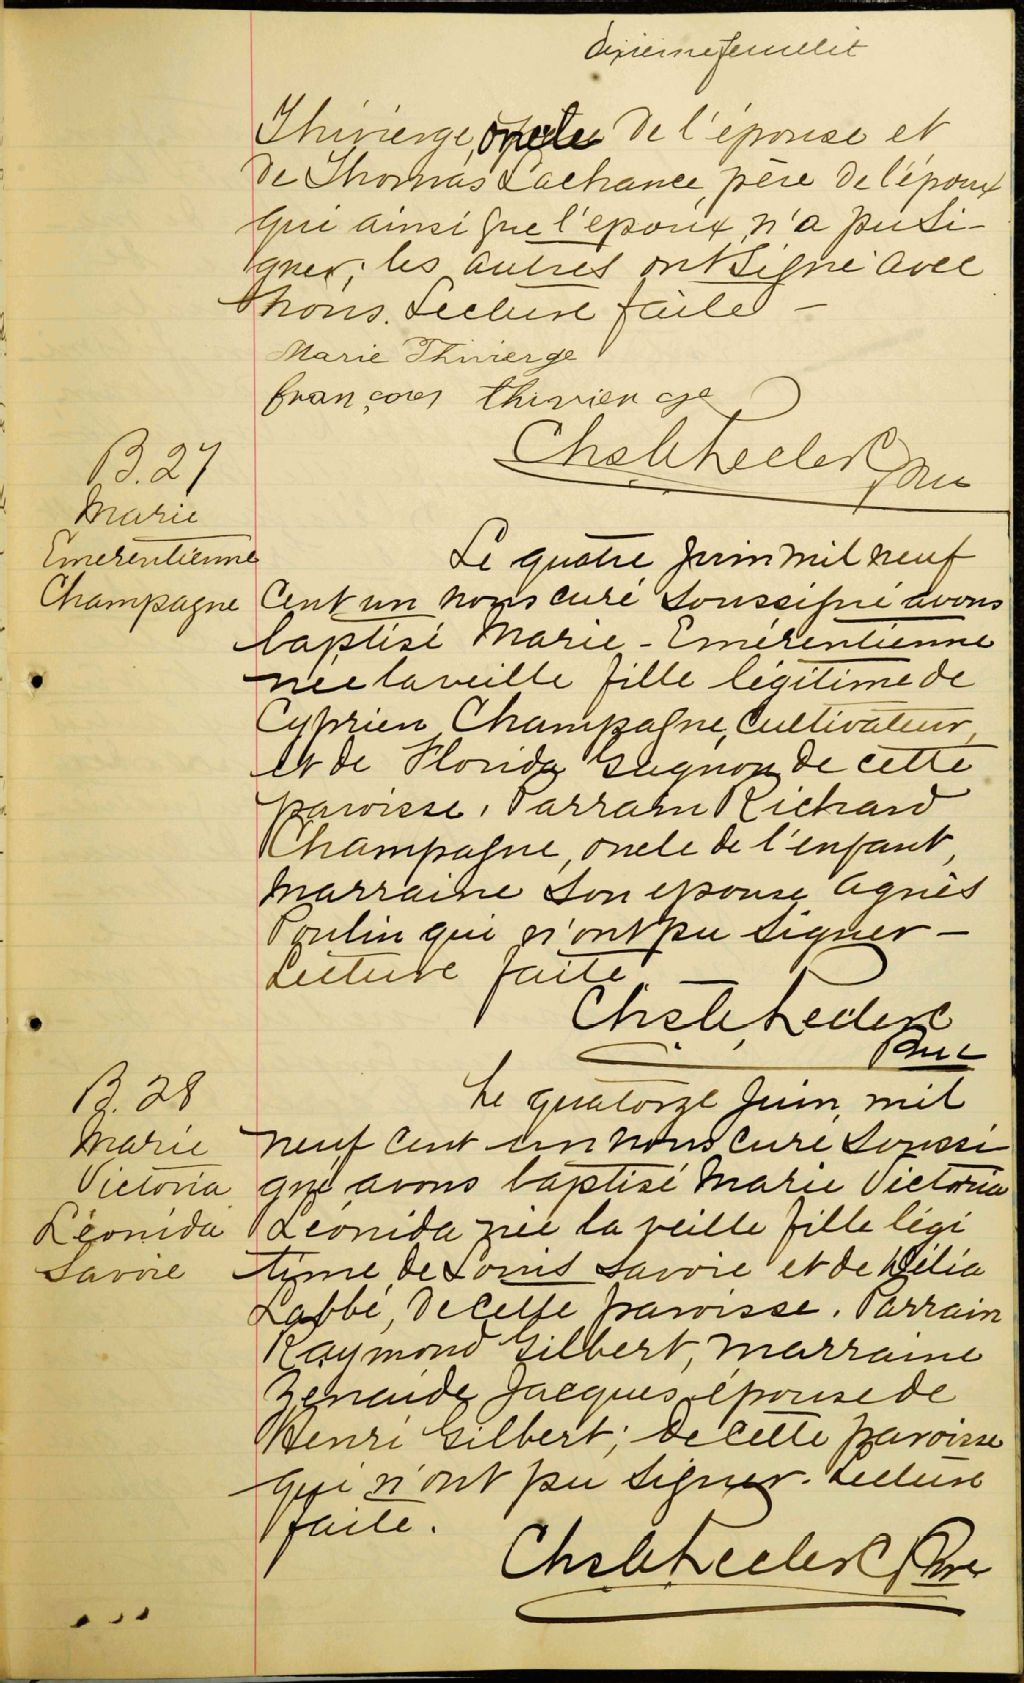 dixième feuillet
Thivierge, oncle de l'épouse et
de Thomas Lachance, père de l'époux
qui ainsi que l'époux, n'a pu si-
gner; les autres ont signé avec
nous. Lecture faite –
Marie Thivierge
françois thivierge
Chs Leclerc Ptre
B. 27
Marie
Emerentienne
Champagne
Le quatre Juin mil neuf
cent un nous curé soussigné avons
baptisé Marie-Emérentienne
née la veille fille légitime de
Cyprien Champagne, cultivateur,
et de Florida Gagnon de cette
paroisse. Parrain Richard
Champagne, oncle de l'enfant,
Marraine son epouse Agnès
Poulin qui n'ont pu signer –
Lecture faite –
Chs Leclerc
Ptre
B. 28
Marie
Victoria
Léonida
Savoie
Le quatorze Juin mil
neuf cent un nous curé soussi
gné avons baptisé Marie Victoria
Léonida née la veille fille légi
time de Louis Savoie et de Délia
Labbé, de cette paroisse. Parrain
Raymond Gilbert, marraine
Zenaïde Jacques épouse de
Henri Gilbert; de cette paroisse
qui n'ont pu signer. Lecture
faite.
Chs Leclerc Ptre